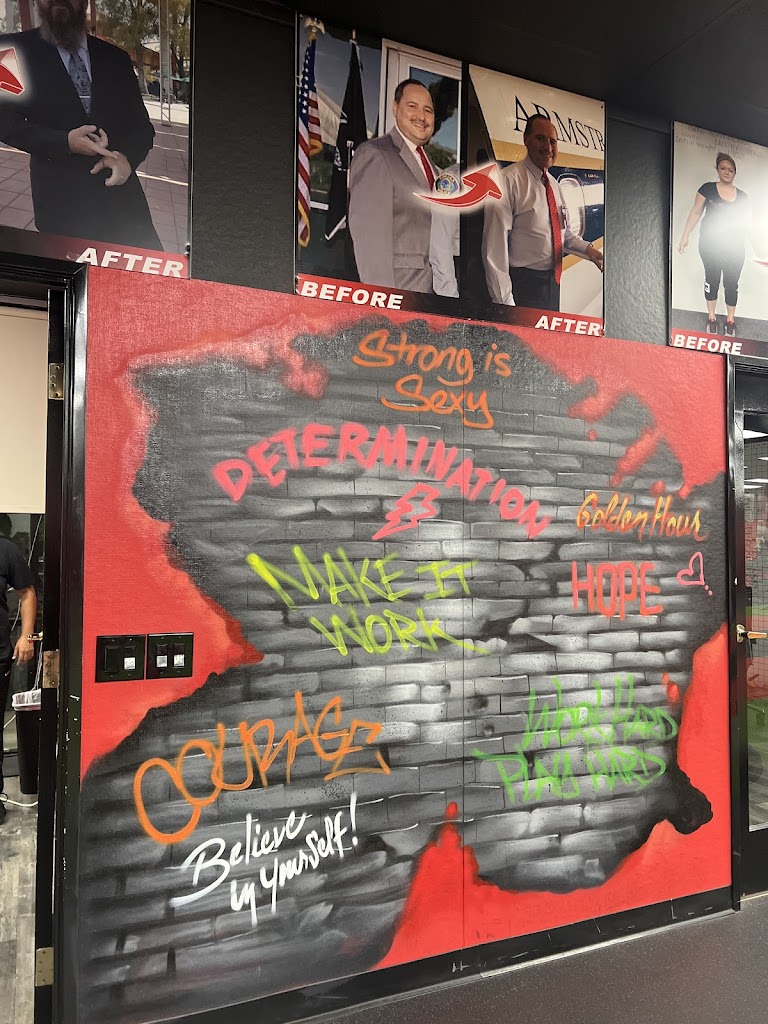 AFTER
BEFORE
ARMSTR
AFTER
BEFORE
Strong is
Sexy
DETERMINATION
Golden Hour
MAKE IT
WORK
HOPE
COURAGE
WORK HARD
PLAY HARD
Believe
in yourself!